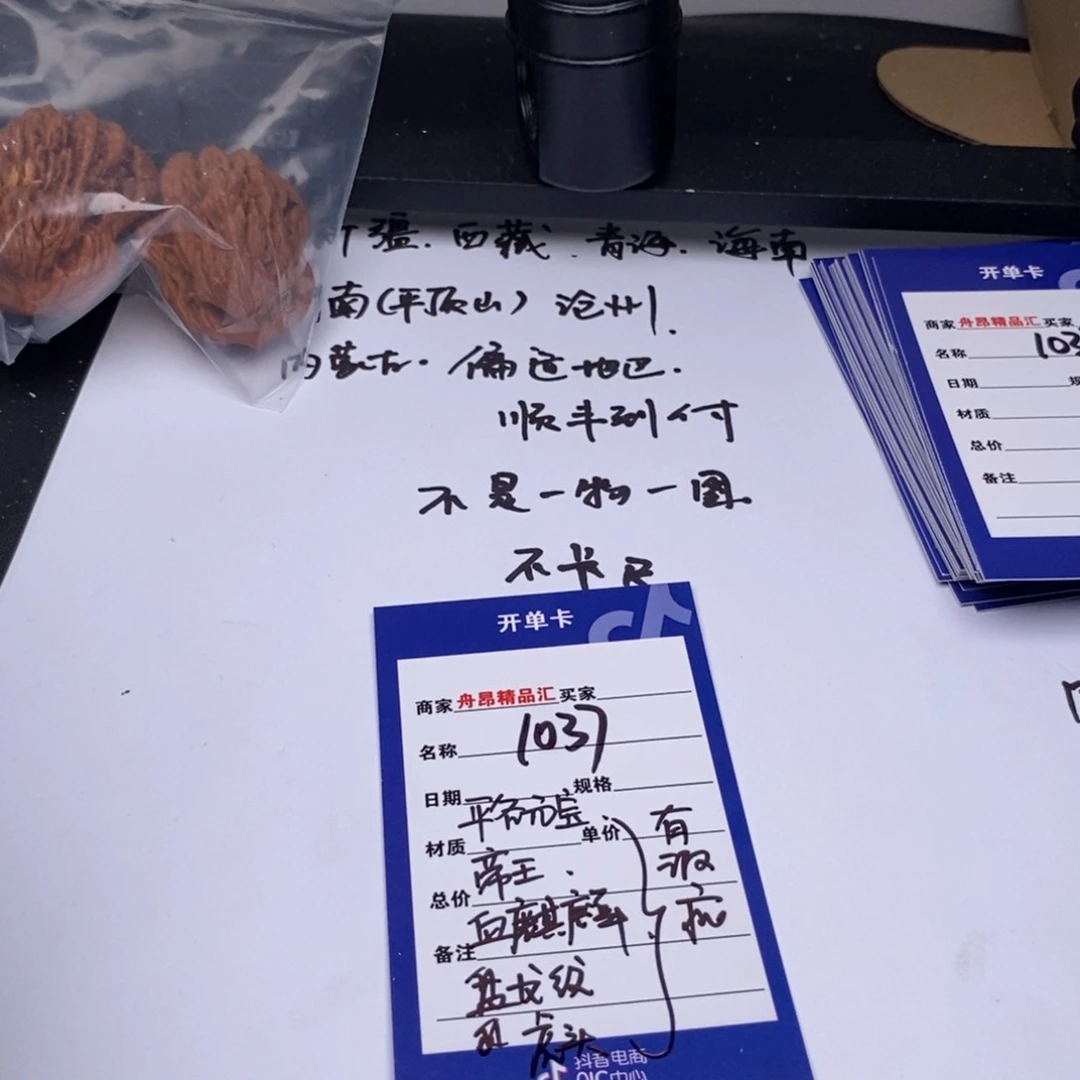 疆.西藏.青海.海南
南(平顶山)沧州.
内蒙古.偏远地区.
顺丰到付
不是一物一图.
不卡尺
开单卡
商家舟昂精品汇买家
名称 1037
日期 规格
平 元宝
材质 单价 有
帝王. 瑕
总价 疵
血麒麟
备注
盘龙纹
虎头
抖音电商
QIC中心
开单卡
商家舟昂精品汇买家
名称 103
日期 规
材质
总价
备注